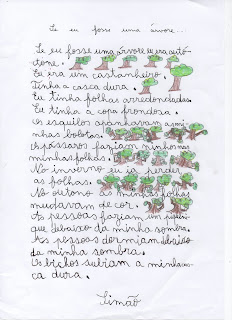 Se eu fosse uma árvore...
Se eu fosse uma árvore eu era autó-
tone.
Eu era um castanheiro.
Tinha a casca dura.
Eu tinha folhas arredondadas.
Eu tinha a copa frondosa.
Os esquilos apanhavam as mi-
nhas bolotas.
Os pássaros faziam ninhos nas
minhas folhas.
No inverno eu ia perder
as folhas.
No outono as minhas folhas
mudavam de cor.
As pessoas faziam um pique-
que debaixo da minha sombra.
As pessoas dormiam debaixo
da minha sombra.
Os bichos subiam a minha cas-
ca dura.
Simão